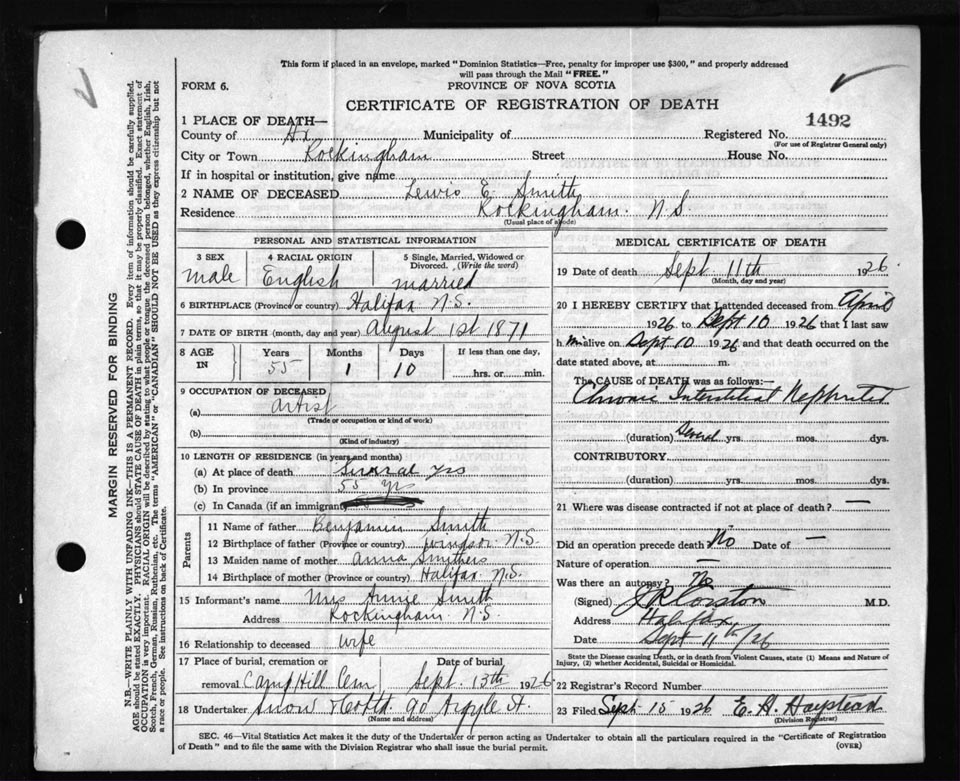 This form if placed in an envelope, marked "Dominion Statistics—Free, penalty for improper use $300," and properly addressed
will pass through the Mail "FREE."
FORM 6.
PROVINCE OF NOVA SCOTIA
CERTIFICATE OF REGISTRATION OF DEATH
1492
1 PLACE OF DEATH—
County of Hx Municipality of Registered No.
(For use of Registrar General only)
City or Town Rockingham Street House No.
If in hospital or institution, give name
2 NAME OF DECEASED Lewis E. Smith
Residence Rockingham. N.S.
(Usual place of abode)
PERSONAL AND STATISTICAL INFORMATION
3 SEX 4 RACIAL ORIGIN 5 Single, Married, Widowed or
Divorced. (Write the word)
male English married
6 BIRTHPLACE (Province or country) Halifax N.S.
7 DATE OF BIRTH (month, day and year) August 1st 1871
8 AGE IN Years Months Days If less than one day,
55 1 10 hrs. or min.
9 OCCUPATION OF DECEASED
(a) artist
(Trade or occupation or kind of work)
(b)
(Kind of industry)
10 LENGTH OF RESIDENCE (in years and months)
(a) At place of death Several yrs
(b) In province 55 yrs
(c) In Canada (if an immigrant)
Parents
11 Name of father Benjamin Smith
12 Birthplace of father (Province or country) Windsor N.S.
13 Maiden name of mother Anna Smithers
14 Birthplace of mother (Province or country) Halifax N.S.
15 Informant's name Mrs Annie Smith
Address Rockingham N.S
16 Relationship to deceased wife
17 Place of burial, cremation or Date of burial
removal Camp Hill Cem Sept. 13th 1926
18 Undertaker Snow & Co Ltd 90 Argyle St.
(Name and address)
MEDICAL CERTIFICATE OF DEATH
19 Date of death Sept 11th 1926
(Month, day and year)
20 I HEREBY CERTIFY that I attended deceased from April
1926 to Sept 10 1926 that I last saw
h im alive on Sept 10 1926 and that death occurred on the
date stated above, at m.
The CAUSE OF DEATH was as follows:—
Chronic Interstitial Nephritis
(duration) Several yrs. mos. dys.
CONTRIBUTORY
(duration) yrs. mos. dys.
21 Where was disease contracted if not at place of death? —
Did an operation precede death No Date of —
Nature of operation —
Was there an autopsy? No
(Signed) J R Corston M.D.
Address Halifax
Date Sept 11th/26
State the Disease causing Death, or in death from Violent Causes, state (1) Means and Nature of
Injury, (2) whether Accidental, Suicidal or Homicidal.
22 Registrar's Record Number
23 Filed Sept 15 1926 E. H.
(Division Registrar)
SEC. 46—Vital Statistics Act makes it the duty of the Undertaker or person acting as Undertaker to obtain all the particulars required in the "Certificate of Registration
of Death" and to file the same with the Division Registrar who shall issue the burial permit.
(OVER)
MARGIN RESERVED FOR BINDING
N.B.—WRITE PLAINLY WITH UNFADING INK—THIS IS A PERMANENT RECORD. Every item of information should be carefully supplied.
AGE should be stated EXACTLY. PHYSICIANS should STATE CAUSE OF DEATH in plain terms, so that it may be properly classified. Exact statement of
OCCUPATION is very important. RACIAL ORIGIN will be described by stating to what people or tongue the deceased person belonged, whether English, Irish,
Scotch, French, German, Russian, Ruthenian, etc. The terms "AMERICAN" or "CANADIAN" SHOULD NOT BE USED as they express citizenship but not
a race or people. See instructions on back of Certificate.